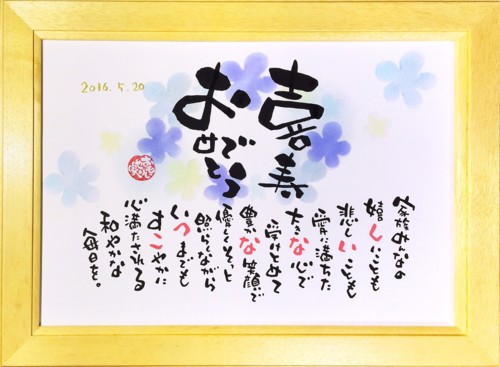 2016.5.20
喜寿
おめでとう
家族みんなの
嬉しいことも
悲しいことも
愛に満ちた
大きな心で
受けとめて
豊かな笑顔で
優しくそっと
照らしながら
いつまでも
すこやかに
心満たされる
和やかな
毎日を。